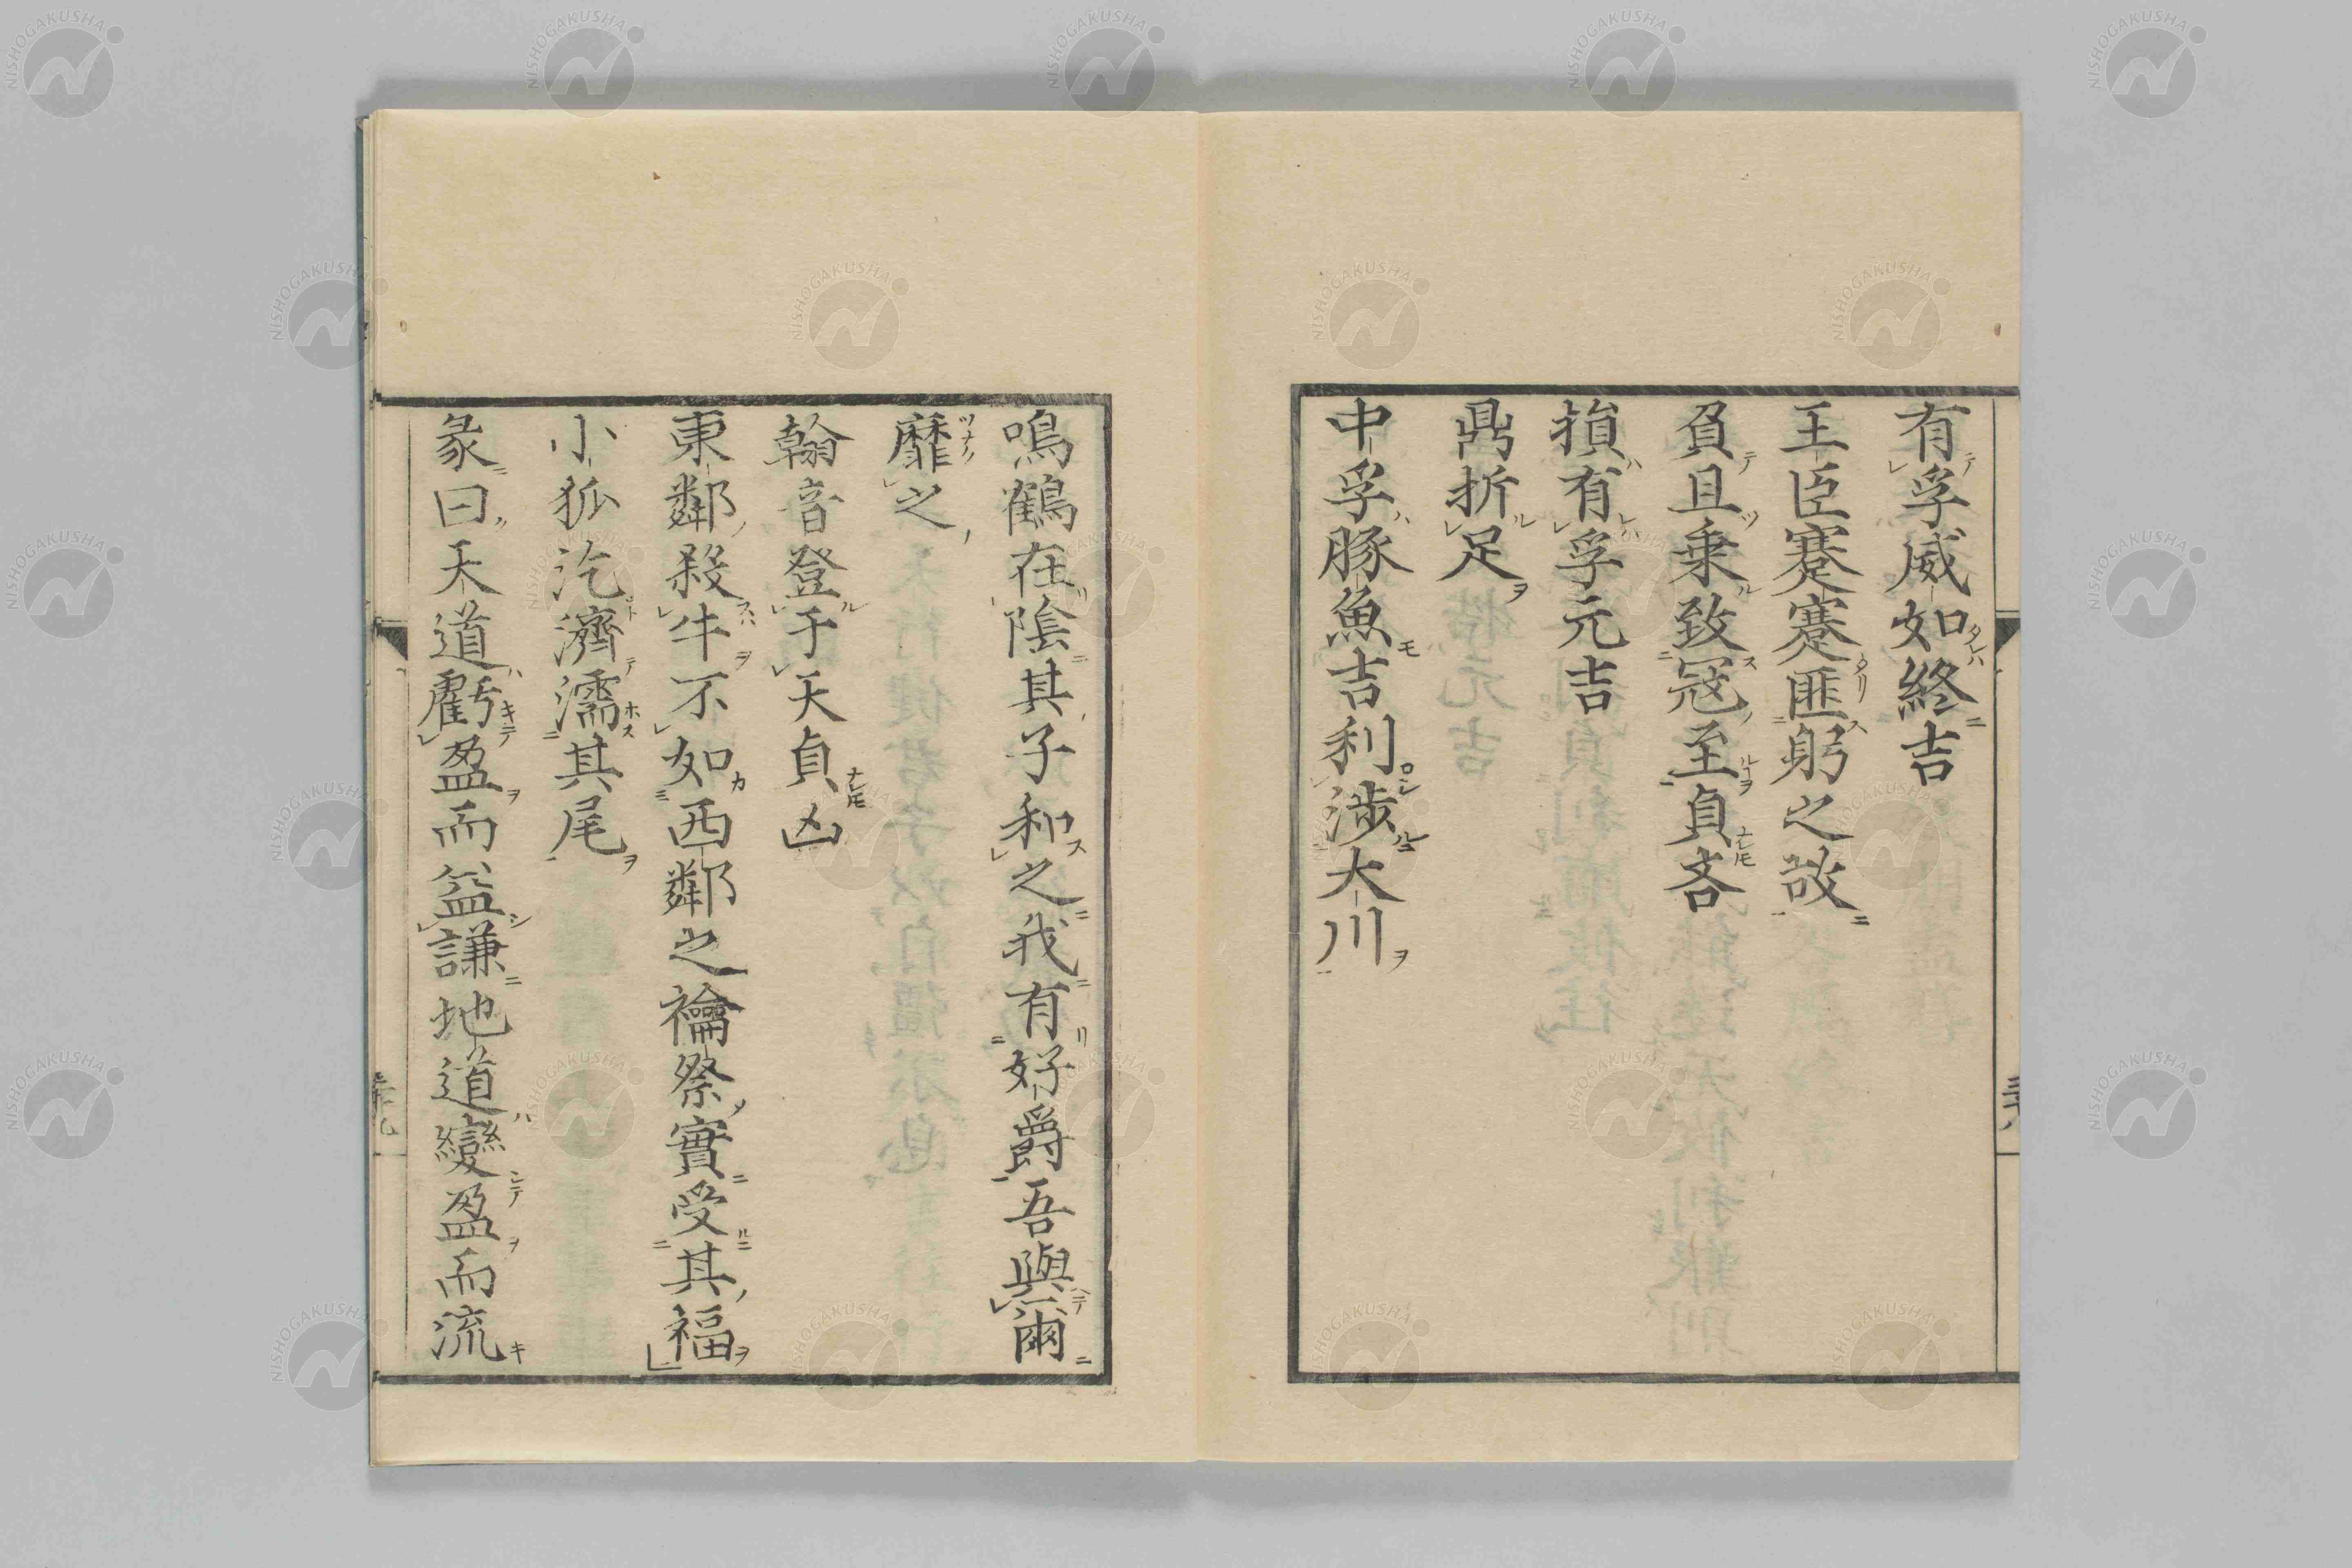 有孚威如終吉
王臣蹇蹇匪躬之故
負且乗致冦至貞吝
損有孚元吉
鼎折足
中孚豚魚吉利涉大川
鳴鶴在陰其子和之我有好爵吾與爾
靡之
翰音登于天貞凶
東鄰殺牛不如西鄰之禴祭實受其福
小狐汔濟濡其尾
彖曰天道虧盈而益謙地道變盈而流
NISHOGAKUSHA